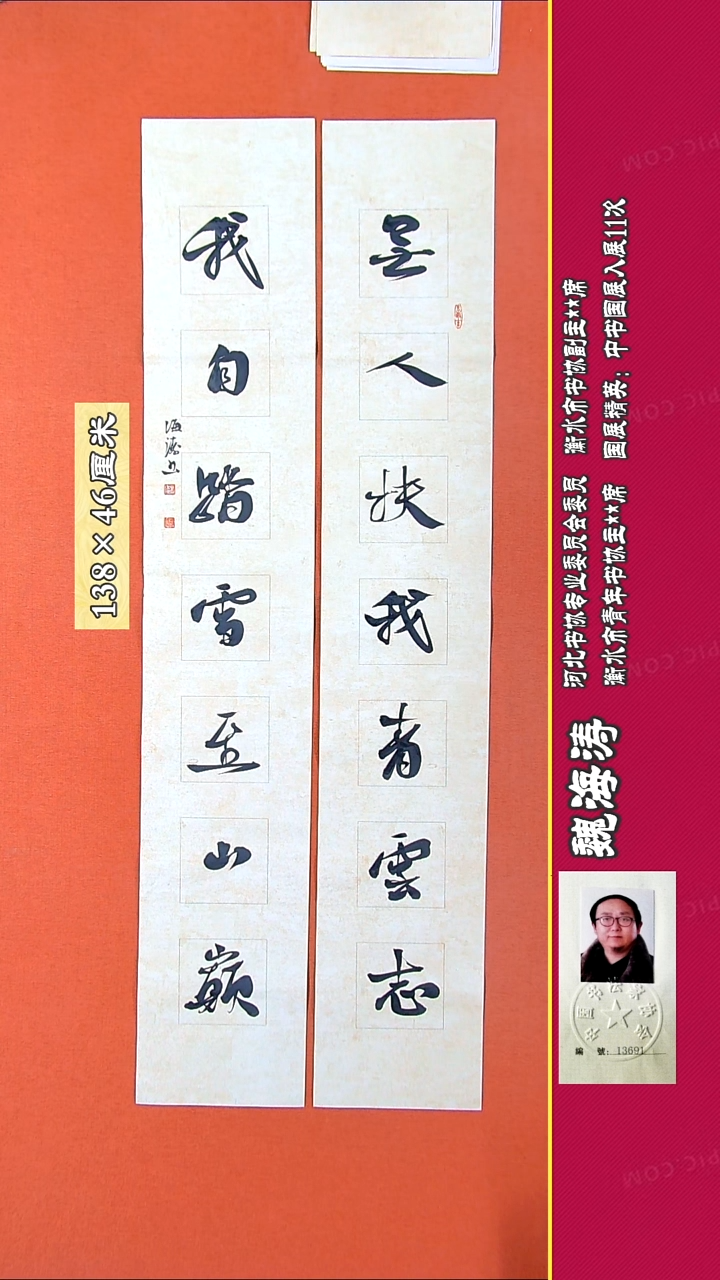 无人扶我青雲志
我自踏雪至山巅
海涛书
138×46厘米
魏海涛
河北书协专业委员会委员 衡水市书协副主**席
衡水市青年书协主**席 国展精英：中书国展入展11次
编 號：13691